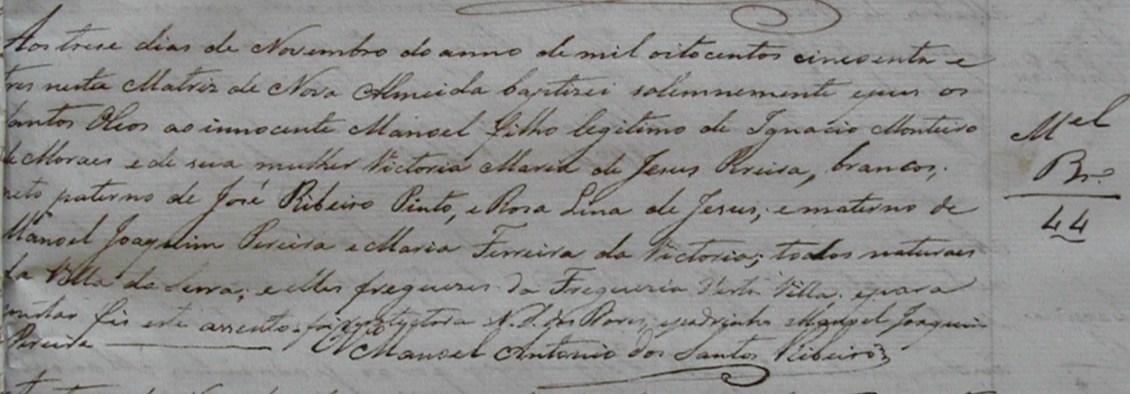 Aos trese dias de Novembro do anno de mil oitocentos cincoenta e
tres nesta Matriz de Nova Almeida baptizei solemnemente epus os
Santos Oleos ao innocente Manoel filho legitimo de Ignacio Monteiro
de Moraes e de sua mulher Victoria Maria de Jesus Preira, brancos;
neto paterno de José Ribeiro Pinto, e Rosa Lina de Jesus; e materno de
Manoel Joaquim Pereira e Maria Ferreira da Victoria; todos naturaes
da Villa da Serra; e elles freguezes da Freguezia d'esta Villa. epara
constar fis este assento. foi Protectora N. S. das Dores, epadrinho Manoel Joaquim
Pereira
O Vo Manoel Antonio dos Santos Ribeiro
Mel
Br.
44